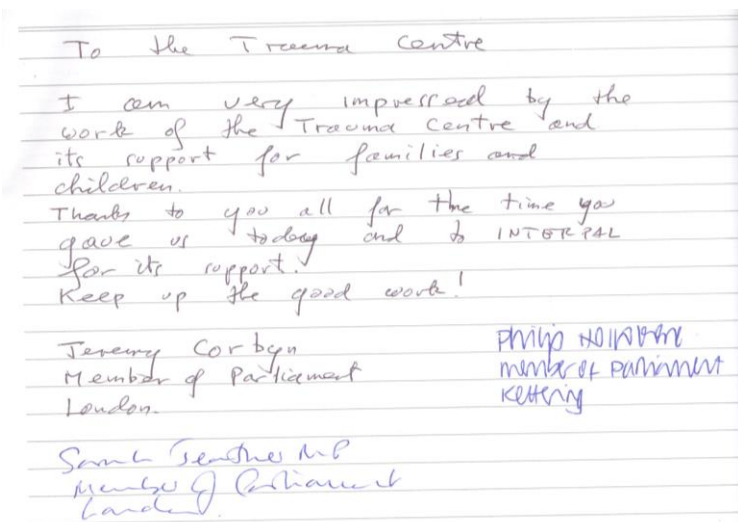 To the Trauma Centre
I am very impressed by the
work of the Trauma Centre and
its support for families and
children.
Thanks to you all for the time you
gave us today and to INTERPAL
for its support.
Keep up the good work!
Jeremy Corbyn
Member of Parliament
London.
Philip Hollobone
member of parliament
Kettering
Sarah Teather MP
Member of Parliament
London.